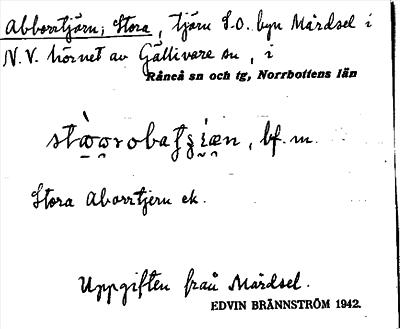 Abborrtjärn, Stora, tjärn S.O. byn Mårdsel i
N.V. hörnet av Gällivare sn, i
Råneå sn och tg, Norrbottens län
bf. m.
Stora Aborrtjern ek.
Uppgiften från Mårdsel.
EDVIN BRÄNNSTRÖM 1942.